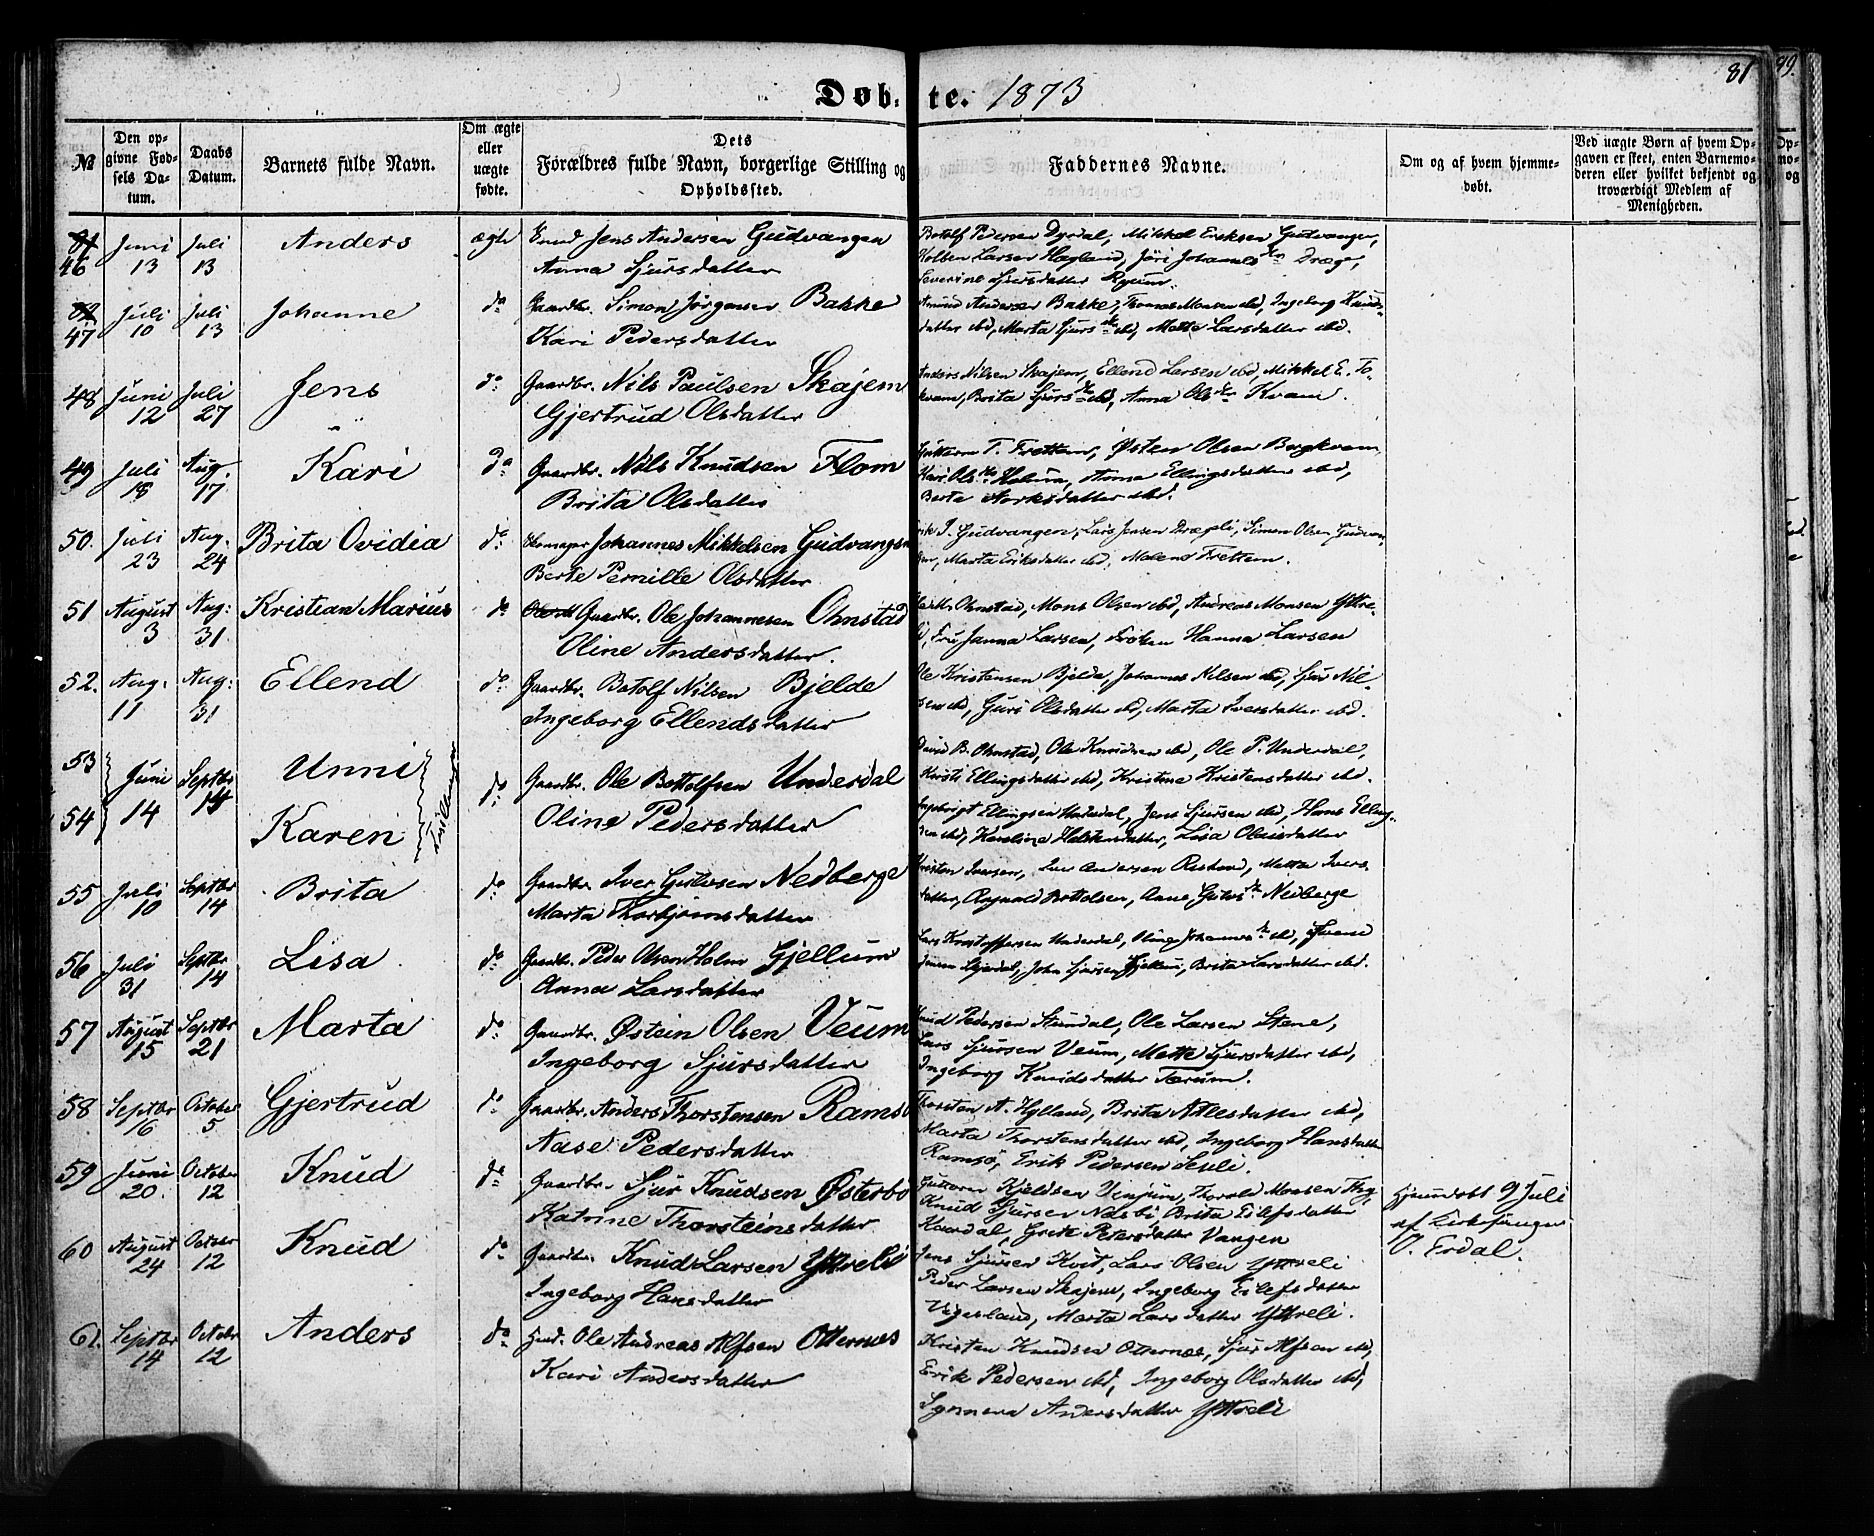 Døb- te. 1873
81
99.
№
Den opgivne Fødsels Datum.
Daabs Datum.
Barnets fulde Navn.
Om ægte eller uægte fødte.
Dets Forældres fulde Navn, borgerlige Stilling og Opholdssted.
Faddernes Navne.
Om og af hvem hjemmedøbt.
Ved uægte Børn af hvem Opgaven er skeet, enten Barnemoderen eller hvilket bekjendt og troværdigt Medlem af Menigheden.
46 Juni 13 Juli 13 Anders ægte Jens Andersen Gudvangen
Anna Sjursdatter
Botolf Pedersen Dyrdal, Mikkel Eriksen Gudvangen,
Kolben Larsen Hagland, Jöri Johannesdtr
Severine Sjursdatter
47 Juli 10 Juli 13 Johanne do Gaardbr. Simon Jørgensen Bakke
Kari Pedersdatter
Amund Andersen Bakke, Thomas Monsen ibd, Ingeborg Knuds-
datter ibd, Marta Sjursdtr ibd, Mette Larsdatter ibd.
48 Juni 12 Juli 27 Jens do Gaardbr. Nils Paulsen Skajem
Gjertrud Olsdatter
Anders Nilsen Skajem, Ellend Larsen ibd, Mikkel E. To-
kvam, Brita Sjursdtr ibd, Anna Olsdtr Kvam.
49 Juli 18 Aug. 17 Kari do Gaardbr. Nils Knudsen Flom
Brita Olsdatter
Guttorm T. Fretten, Østen Olsen Bergkvam,
Kari Olsdtr Anna Ellingsdatter ibd,
Berte datter ibd.
50. Juli 23 Aug. 24 Brita Ovidia do Skomager Johannes Mikkelsen Gudvangen
Berte Pernille Olsdatter
Erik J. Gudvangen, Lars Jensen Simon Olsen Gudvan-
Marta Eriksdatter ibd, Malene Fretten.
51 August 3 Aug: 31. Kristian Marius do Gaardbr. Ole Johannesen Ohnstad
Oline Andersdatter.
Ohnstad, Mons Olsen ibd, Andreas Monsen Yttre-
li, Fru Janna Larsen, Frøken Hanna Larsen
52. Aug. 11 Aug: 31 Ellend do Gaardbr. Botolf Nilsen Bjelde
Ingeborg Ellendsdatter
Ole Kristensen Bjelde, Johannes Nilsen ibd, Sjur Nil-
sen ibd, Guri Olsdatter ibd, Marta Iversdatter ibd.
53 Juni 14 Septbr 14 Unni Tvillinger do Gaardbr. Ole Bottolfsen Underdal
54 Karen
Oline Pedersdatter
David B. Ohnstad, Ole Knudsen ibd, Ole P. Underdal,
Kersti Ellingsdatter ibd, Kristine Kristensdatter ibd.
Ingebrigt Ellingsen Underdal, Jens Sjursen ibd, Hans Elling-
sen ibd, Karoline Lisa Olsdatter
55 Juli 10 Septbr 14 Brita do Gaardbr. Iver Gulvsen Nedberge
Marta Thorbjørnsdatter
Kristen Iversen, Iver Andersen Metta Ivers-
datter, Ragnald Bottolsen, Anne Nedberge
56 Juli 31 Septbr 14 Lisa do Gaardbr. Peder Olsen Holm Gjellum
Anna Larsdatter
Lars Kristoffersen Underdal, Oline Johannesdtr ibd,
John Sjursen Gjellum, Brita Larsdatter ibd.
57 August 15 Septbr 21 Marta do Gaardbr. Østein Olsen Veum
Ingeborg Sjursdatter
Knud Pedersen Stundal, Ole Larsen Stene,
Lars Sjursen Veum, Mette Sjursdatter ibd,
Ingeborg Knudsdatter Tærum.
58 Septbr 6 October 5 Gjertrud do Gaardbr. Anders Thorstensen Ramsö
Aase Pedersdatter
Thorsten A. Hylland, Brita Nilsdatter ibd,
Marta Thorstensdatter ibd, Ingeborg Hansdatter
Ramsö, Erik Pedersen
59 Juni 20. October 12 Knud do Gaardbr. Sjur Knudsen Østerbø
Katrine Thorsteinsdatter
Guttorm Kjeldsen Vinjum, Thorald Monsen
Knud Sjursen Næsbø, Brita Eilefsdatter
Kaardal, Grete Petersdatter Vangen
Hjemmedøbt 9 Juli
af Kirkesanger
O. Erdal.
60 August 24 October 12 Knud do Gaardbr. Knud Larsen Yttreli
Ingeborg Hansdatter
Jens Sjursen Lars Olsen Yttreli
Peder Larsen Skajem, Ingeborg Eilefsdatter
Vigesland, Marta Larsdatter Yttreli.
61. Septbr 14 October 12 Anders do Husd. Ole Andreas Alfsen Otternes
Kari Andersdatter
Kristen Knudsen Otternes, Sjur Alfsen ibd,
Erik Pedersen ibd, Ingeborg Olsdatter ibd,
Synneva Andersdatter Yttreli